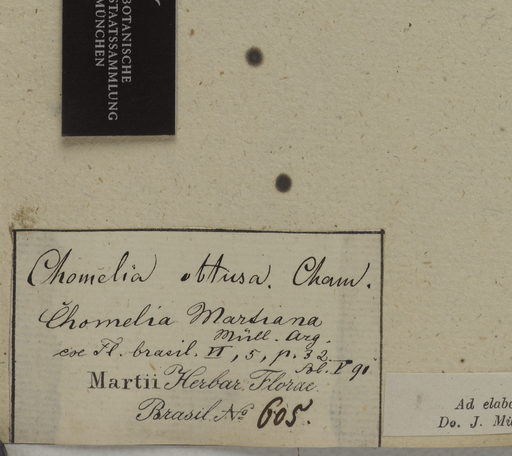 BOTANISCHE
STAATSSAMMLUNG
MÜNCHEN
Chomelia obtusa. Cham.
Chomelia Martiana
Müll. Arg.
Fl. brasil. VI, 5, p. 32
Martii Herbar. Florae
Brasil. No 605.
Ad elabo
Do. J. Mü